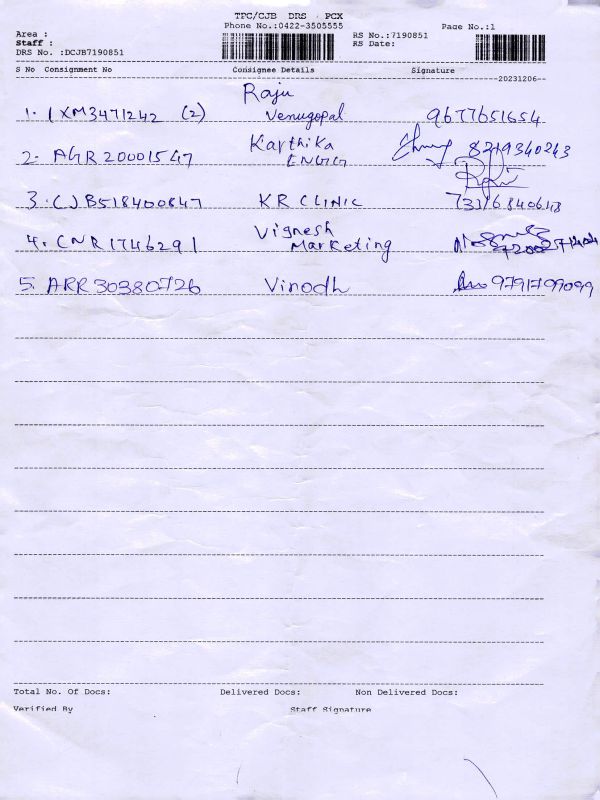 TPC/CJB DRS PCX
Phone No.:0422-3505555
Page No.:1
Area :
RS No.:7190851
Staff :
RS Date:
DRS No. :DCJB7190851
S No Consignment No Consignee Details Signature
20231206
1. IXM3471242 (2) Raju Venugopal 9677651654
2. AGR20001547 Karthika ENGG 8219340243
3. CJB518400847 KR CLINIC 73116840648
4. CNR1746291 Vignesh Marketing
5. ARR30380726 Vinodh 9791799099
Total No. Of Docs: Delivered Docs: Non Delivered Docs:
Verified By Staff Signature